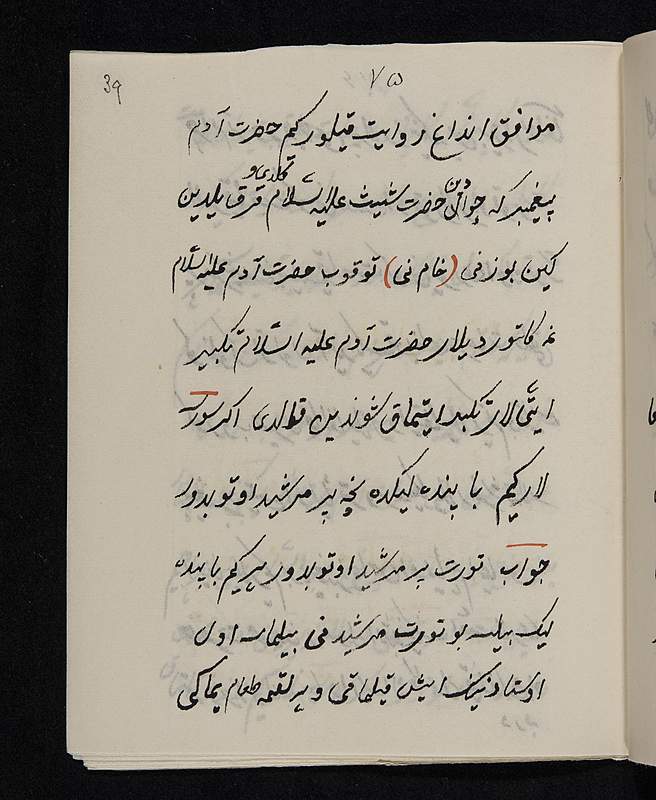 39 ٧۵
موافق انداغ روایت قیلورکم حضرت آدم
پیغمبر که حضرت شیث علیه السّلام قرق ییلدین
کین بوزنی (خام نی) توقوب حضرت آدم علیه السّلام
غه حضرت آدم علیه السّلام تکبیر
ایتّی لار تکبیر ایتماق شوندین قالدی اکر سورسه
لارکیم بابنده لیکده نچه پیر مرشید اوتوبدور
جواب تورت پیر مرشید اوتوبدور هر کیم بابنده
لیک بیلسه بو تورت مرشید نی بیلماسه اول
اوستادنینک ایش قیلماقی و بیر لقمه طعام یماکی